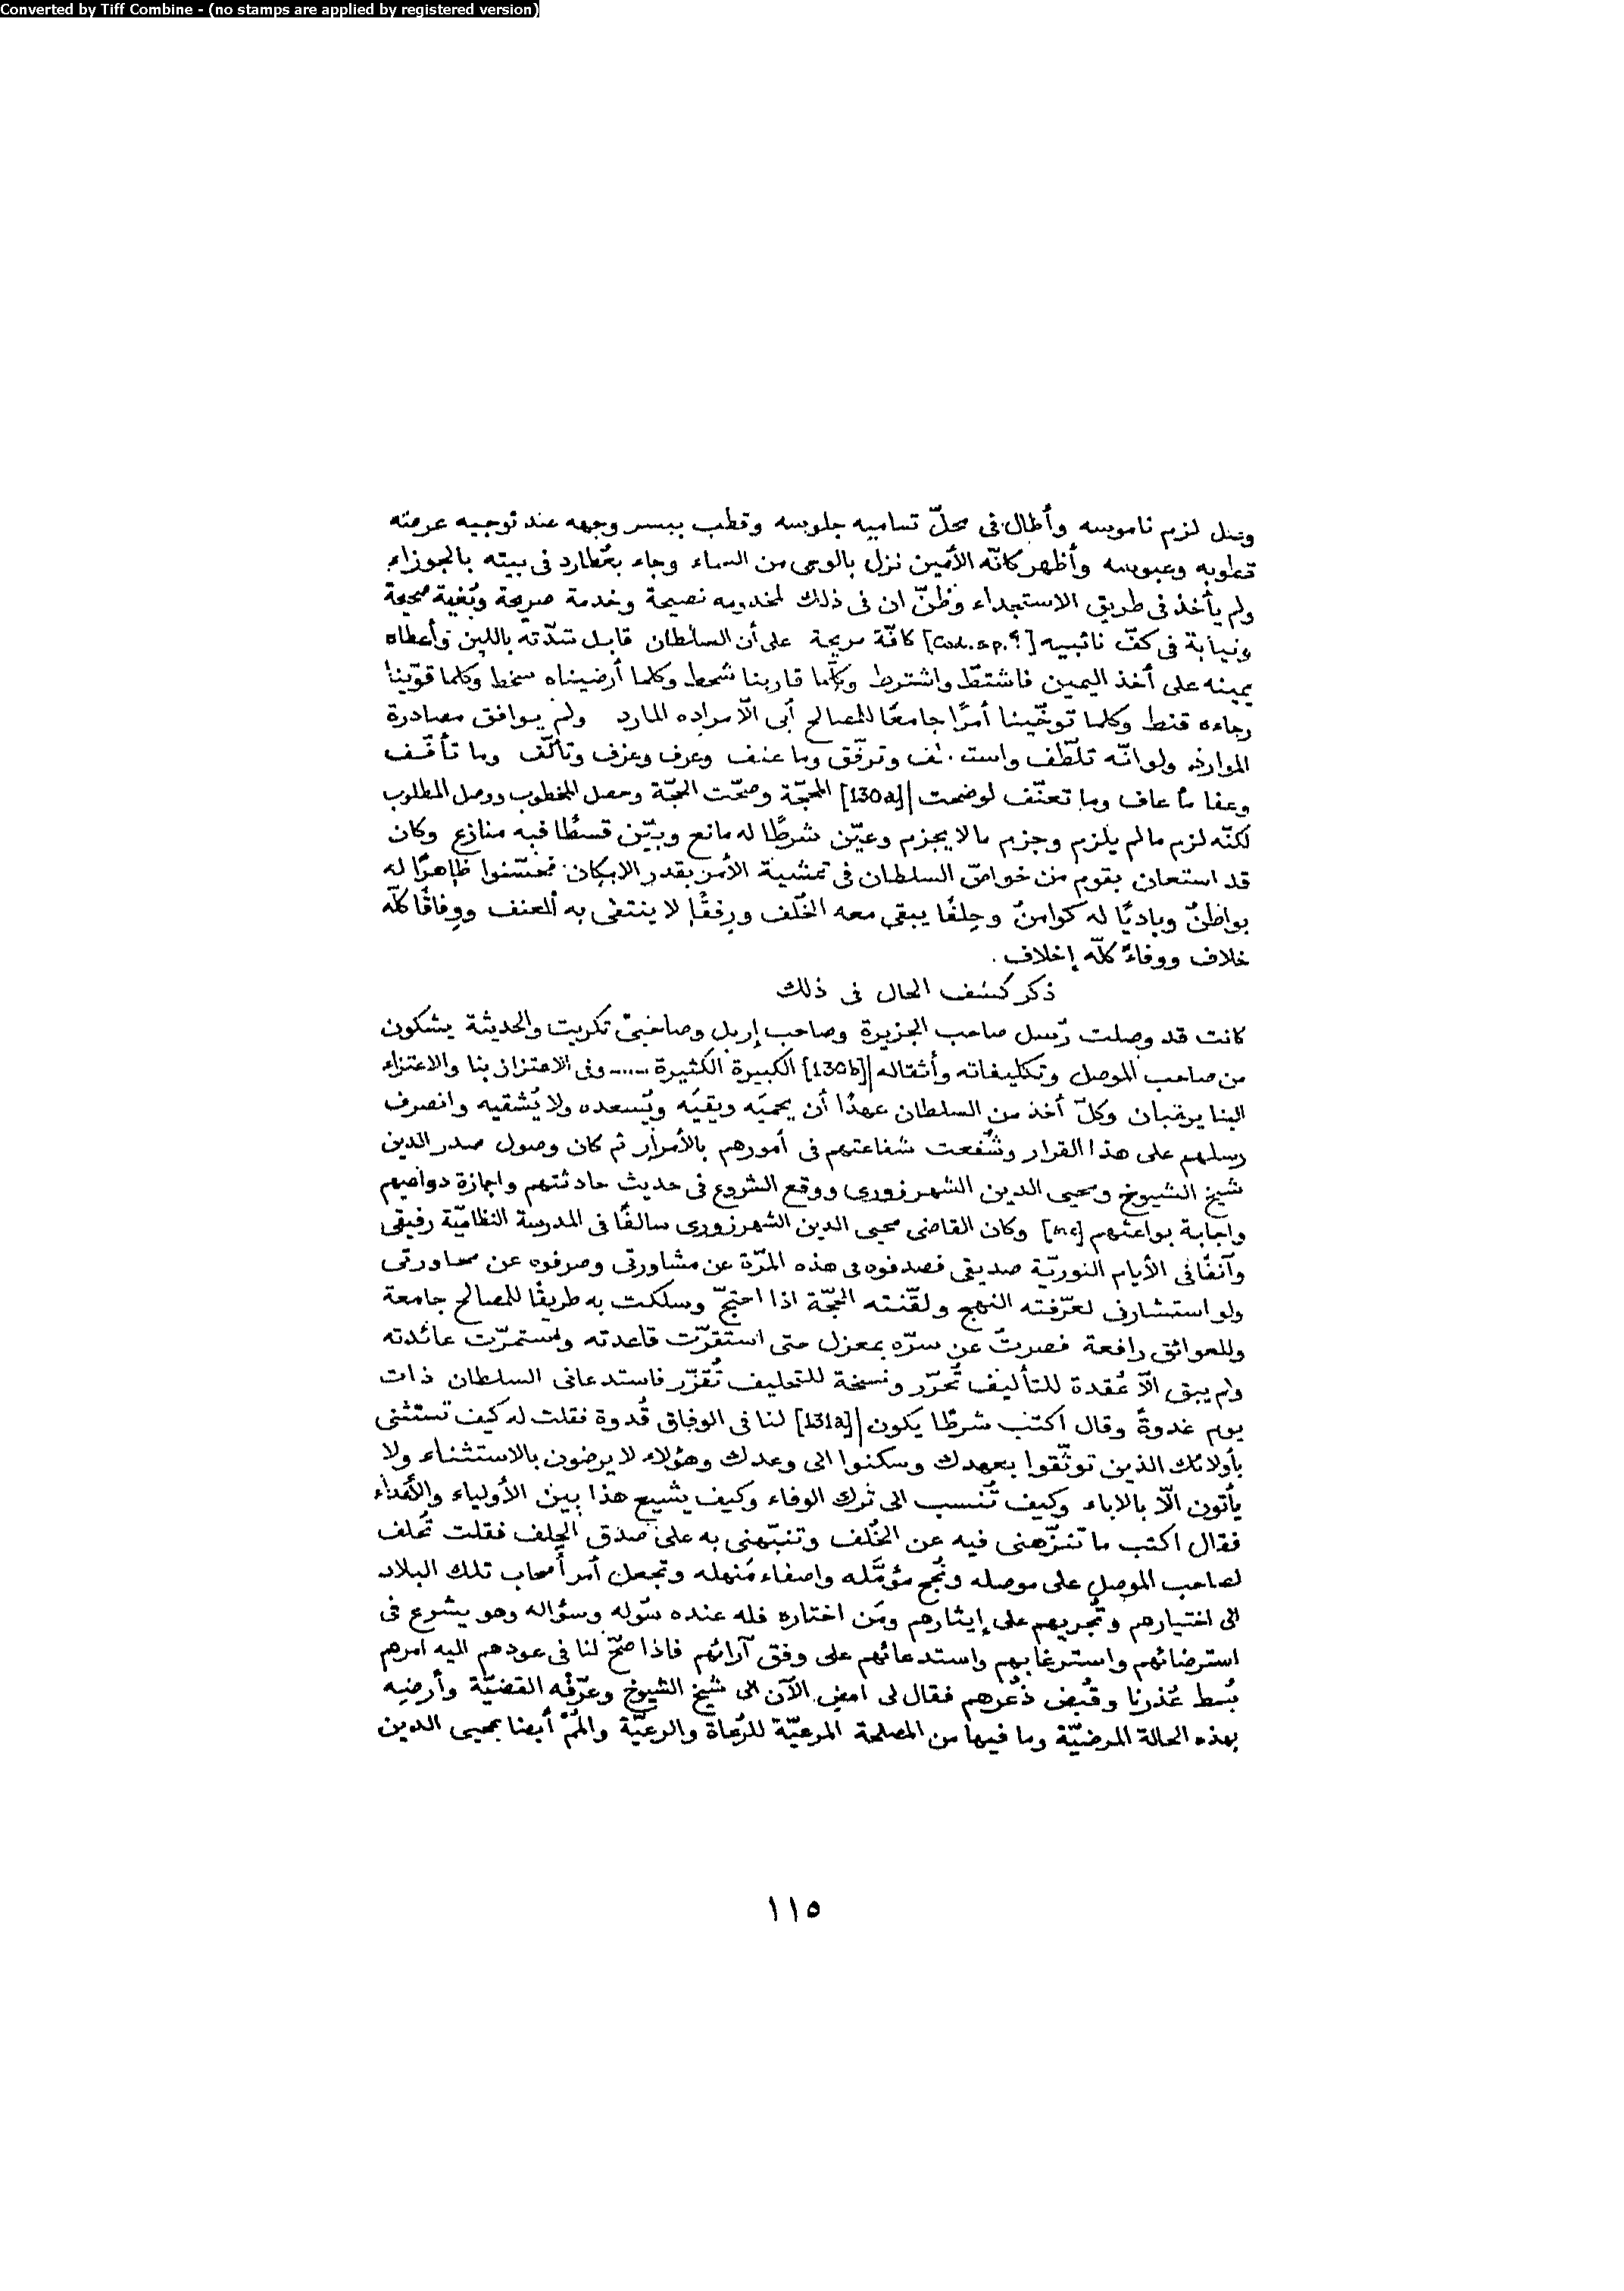 Converted by Tiff Combine - (no stamps are applied by registered version)
وصل لزم ناموسه وأطال فى محلّ تساميه جلوسه وقطب ببسر وجهه عند توجيه عرمته
قطوبه وعبوسه وأظهر كانّه الأمين نزل بالوحى من السماء وجاء بعُطارد فى بيته بالجوزاء
ولم يأخذ فى طريق الاستجداء وظنّ ان فى ذلك لمخدومه نصيحة وخدمة صريحة وبُغية صحيحة
ونيابة فى كفّ نائبيه [Cod. sp.?] كافّة مريحة على أن السلطان قابل شدّته باللين وأعطاه
يمينه على أخذ اليمين فاشتطّ واشترط وكلّما قاربنا شحط وكلما أرضيناه سخط وكلما قوّينا
رجاءه قنط وكلما توخّينا أمرًا جامعًا للمصالح أبى الّا مراده المارد ولم يوافق مصادرة
الموارد ولو انّه تلطّف وترفّق وما عنف وعرف وعزف وتألّف وما تأفّف
وعفا ما عاف وما تعنّف لوضحت [130a] المحجّة وصحّت الحجّة وحصل المخطوب ووصل المطلوب
لكنّه لزم ما لم يلزم وجزم ما لا يجزم وعيّن شرطًا له مانع وبيّن قسطًا فيه منازع وكان
قد استعان بقوم من خواصّ السلطان فى تمشية الأمر بقدر الامكان فحسّنوا ظاهرًا له
بواطنُ وباديًا له كوامنُ وحِلفًا يبقى معه الخُلف ورفقًا لا ينتفى به العنف ووِفاقًا كلّه
خلاف ووفاءً كلّه إخلاف .
ذكر كشف الحال فى ذلك
كانت قد وصلت رُسل صاحب الجزيرة وصاحب إربل وصاحبىّ تكريت والحديثة يشكون
من صاحب الموصل وتكليفاته وأثقاله [130b] الكبيرة الكثيرة ...... وفى الاعتزاز بنا والاعتزاء
الينا يرغبان وكلّ أخذ من السلطان عهدًا أن يحميَه ويقيَه ويُسعده ولا يُشقيه وانصرف
رسلهم على هذا القرار وشُفّعت شفاعتهم فى أمورهم بالأمرار ثم كان وصول صدر الدين
شيخ الشيوخ ومحيى الدين الشهرزورى ووقع الشروع فى حديث حادثتهم واجازة دواعيهم
واجابة بواعثهم [sic] وكان القاضى محيى الدين الشهرزورى سالفًا فى المدرسة النظاميّة رفيقى
وآنفًا فى الأيام النوريّة صديقى فصدفوه فى هذه المرّة عن مشاورتى وصرفوه عن محاورتى
ولو استشارنى لعرّفته النهج ولقّنته الحجّة اذا احتجّ وسلكت به طريقًا للمصالح جامعة
وللعوائق رافعة فصرتُ عن سرّه بمعزل حتى استقرّت قاعدته واستمرّت عائدته
ولم يبق الّا عُقدة للتأليف تُحرّر ونسخة للتحليف تُقرّر فاستدعانى السلطان ذات
يوم غدوةً وقال اكتب شرطًا يكون [131a] لنا فى الوفاق قُدوة فقلت له كيف تستثنى
بأولائك الذين توثّقوا بعهدك وسكنوا الى وعدك وهؤلاء لا يرضون بالاستثناء ولا
يأتون الّا بالاباء وكيف تُنسب الى ترك الوفاء وكيف يشيع هذا بين الأولياء والأعداء
فقال اكتب ما تنزّهنى فيه عن الخُلف وتنبّهنى به على صدق الحِلف فقلت تُحلف
لصاحب الموصل على موصله ونُجح مؤمَّله واصفاء مَنهله وتجعل أمر أصحاب تلك البلاد
الى اختيارهم وتُجريهم على إيثارهم ومَن اختاره فله عنده سُوله وسؤاله وهو يشرع فى
استرضائهم واسترغابهم واستدعائهم على وفق آرائهم فاذا صحّ لنا فى عودهم اليه امرهم
بُسط عُذرنا وقُبض ذُعرهم فقال لى امض الآن الى شيخ الشيوخ وعرّفه القضيّة وأرضِه
بهذه الحالة المرضيّة وما فيها من المصلحة المرعيّة للرُعاة والرعيّة والمُمْ أيضا بمحيى الدين
١١٥